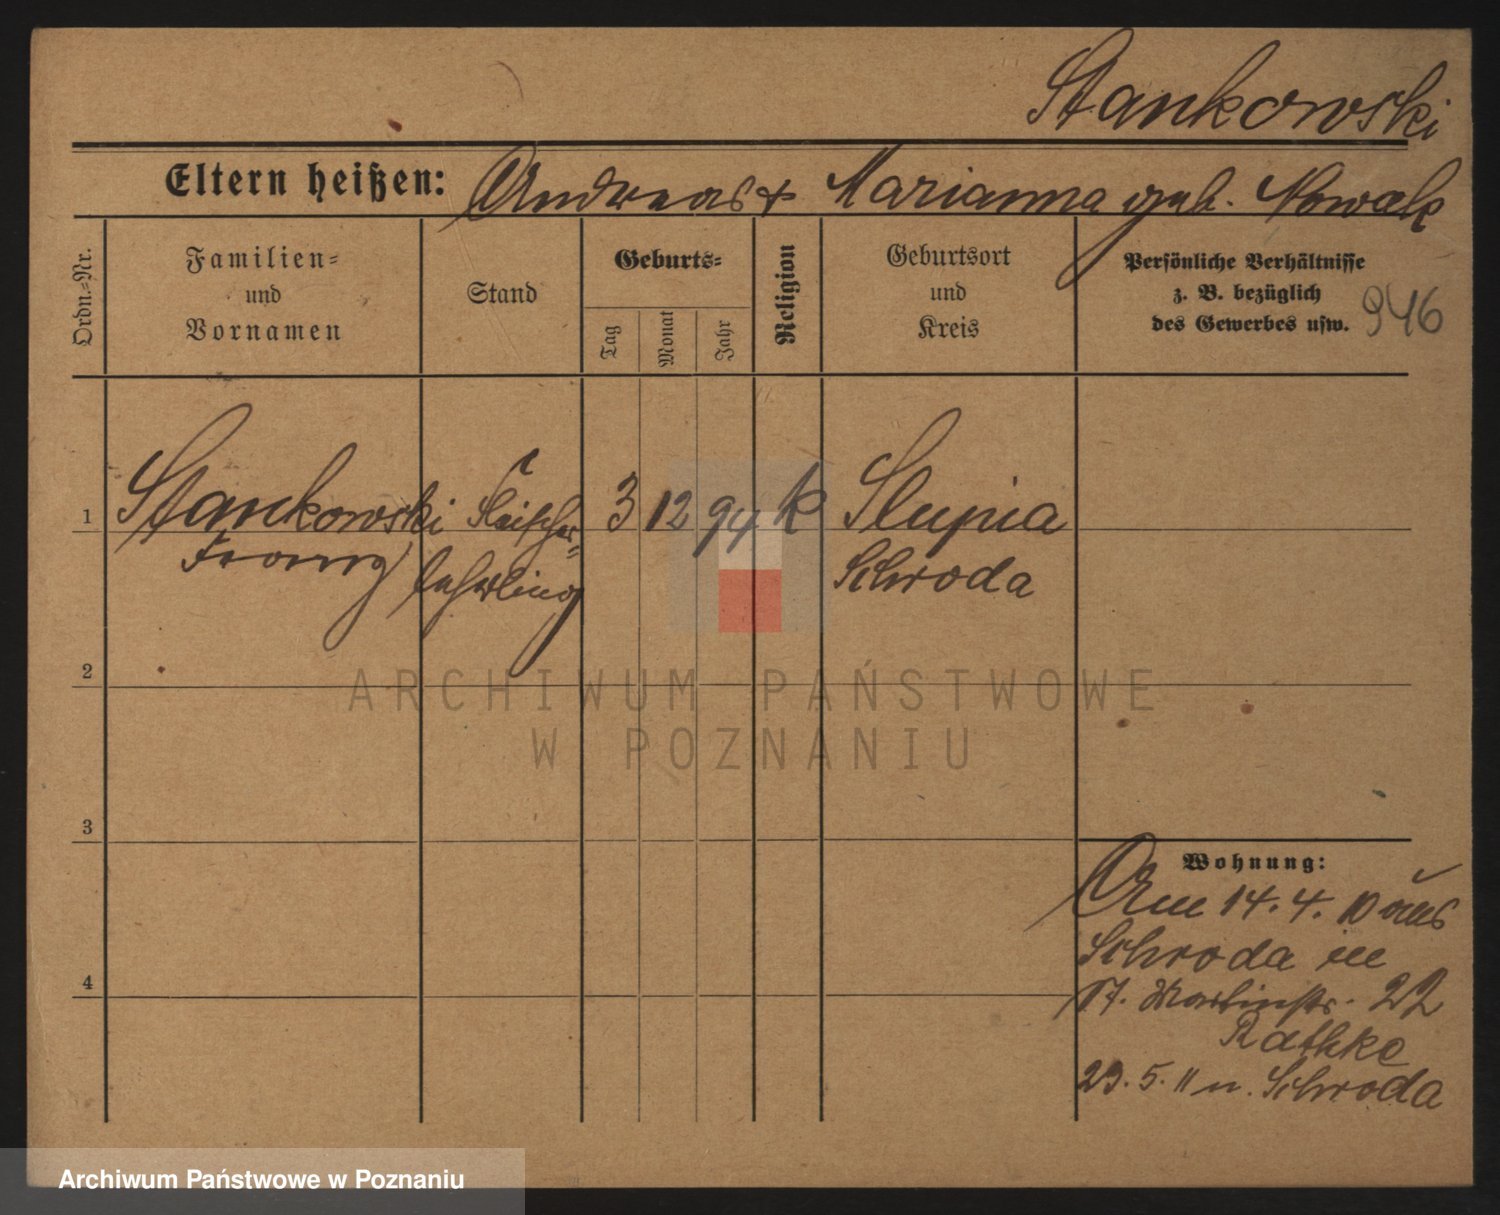 Stankowski
Eltern heißen: Andreas + Marianna geb. Nowak
Ordn.=Nr.
Familien=
und
Vornamen
Stand
Geburts=
Tag
Monat
Jahr
Religion
Geburtsort
und
Kreis
Persönliche Verhältnisse
z. B. bezüglich
des Gewerbes usw.
946
1 Stankowski Fleischer= 3 12 94 k Slupia
Franz lehrling Schroda
2
3
4
Wohnung:
Am 14. 4. 10 aus
Schroda in
17. Martinstr. 22
Rathke
23. 5. 11 n. Schroda
ARCHIWUM PAŃSTWOWE
W POZNANIU
Archiwum Państwowe w Poznaniu